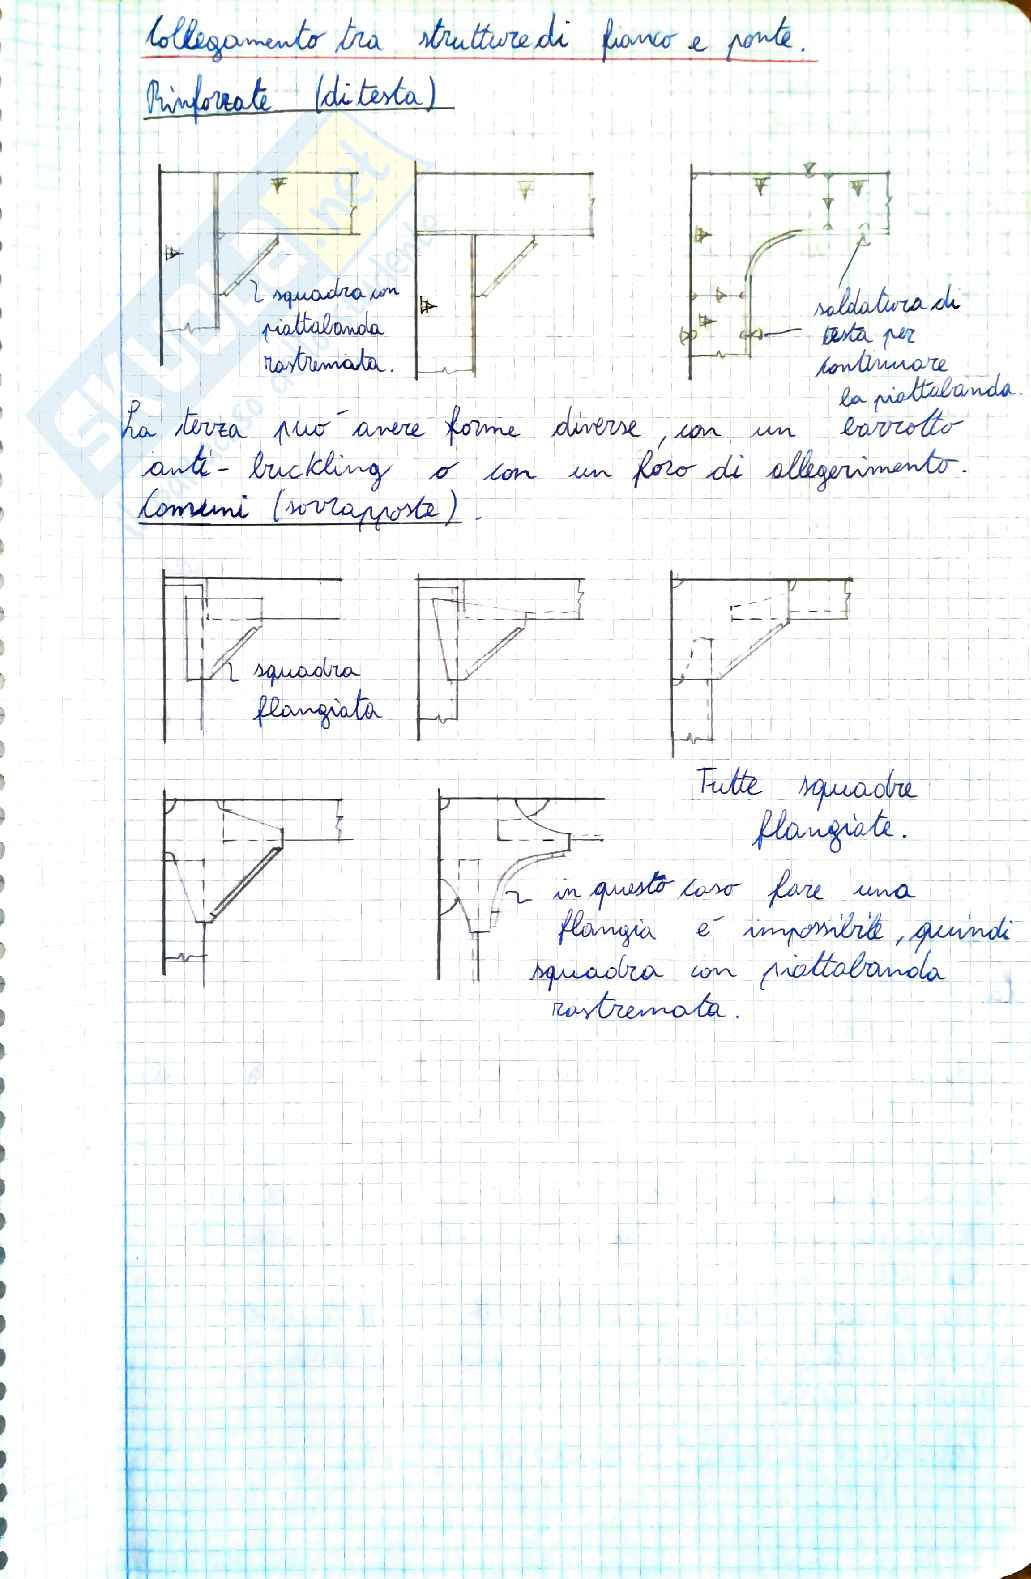 Collegamento tra strutture di fianco e ponte.
Rinforzate (di testa)
squadra con
piattabanda
rastremata.
saldatura di
testa per
continuare
la piattabanda.
La terza può avere forme diverse, con un barrotto
anti-buckling o con un foro di allegerimento.
Comuni (sovrapposte).
squadra
flangiata
Tutte squadre
flangiate.
in questo caso fare una
flangia è impossibile, quindi
squadra con piattabanda
rastremata.
SKUOLA.net